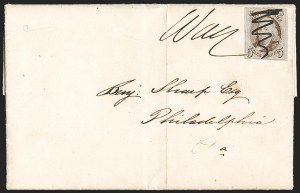 Way
Benj. Sharp Esq
Philadelphia
Pa
5 5